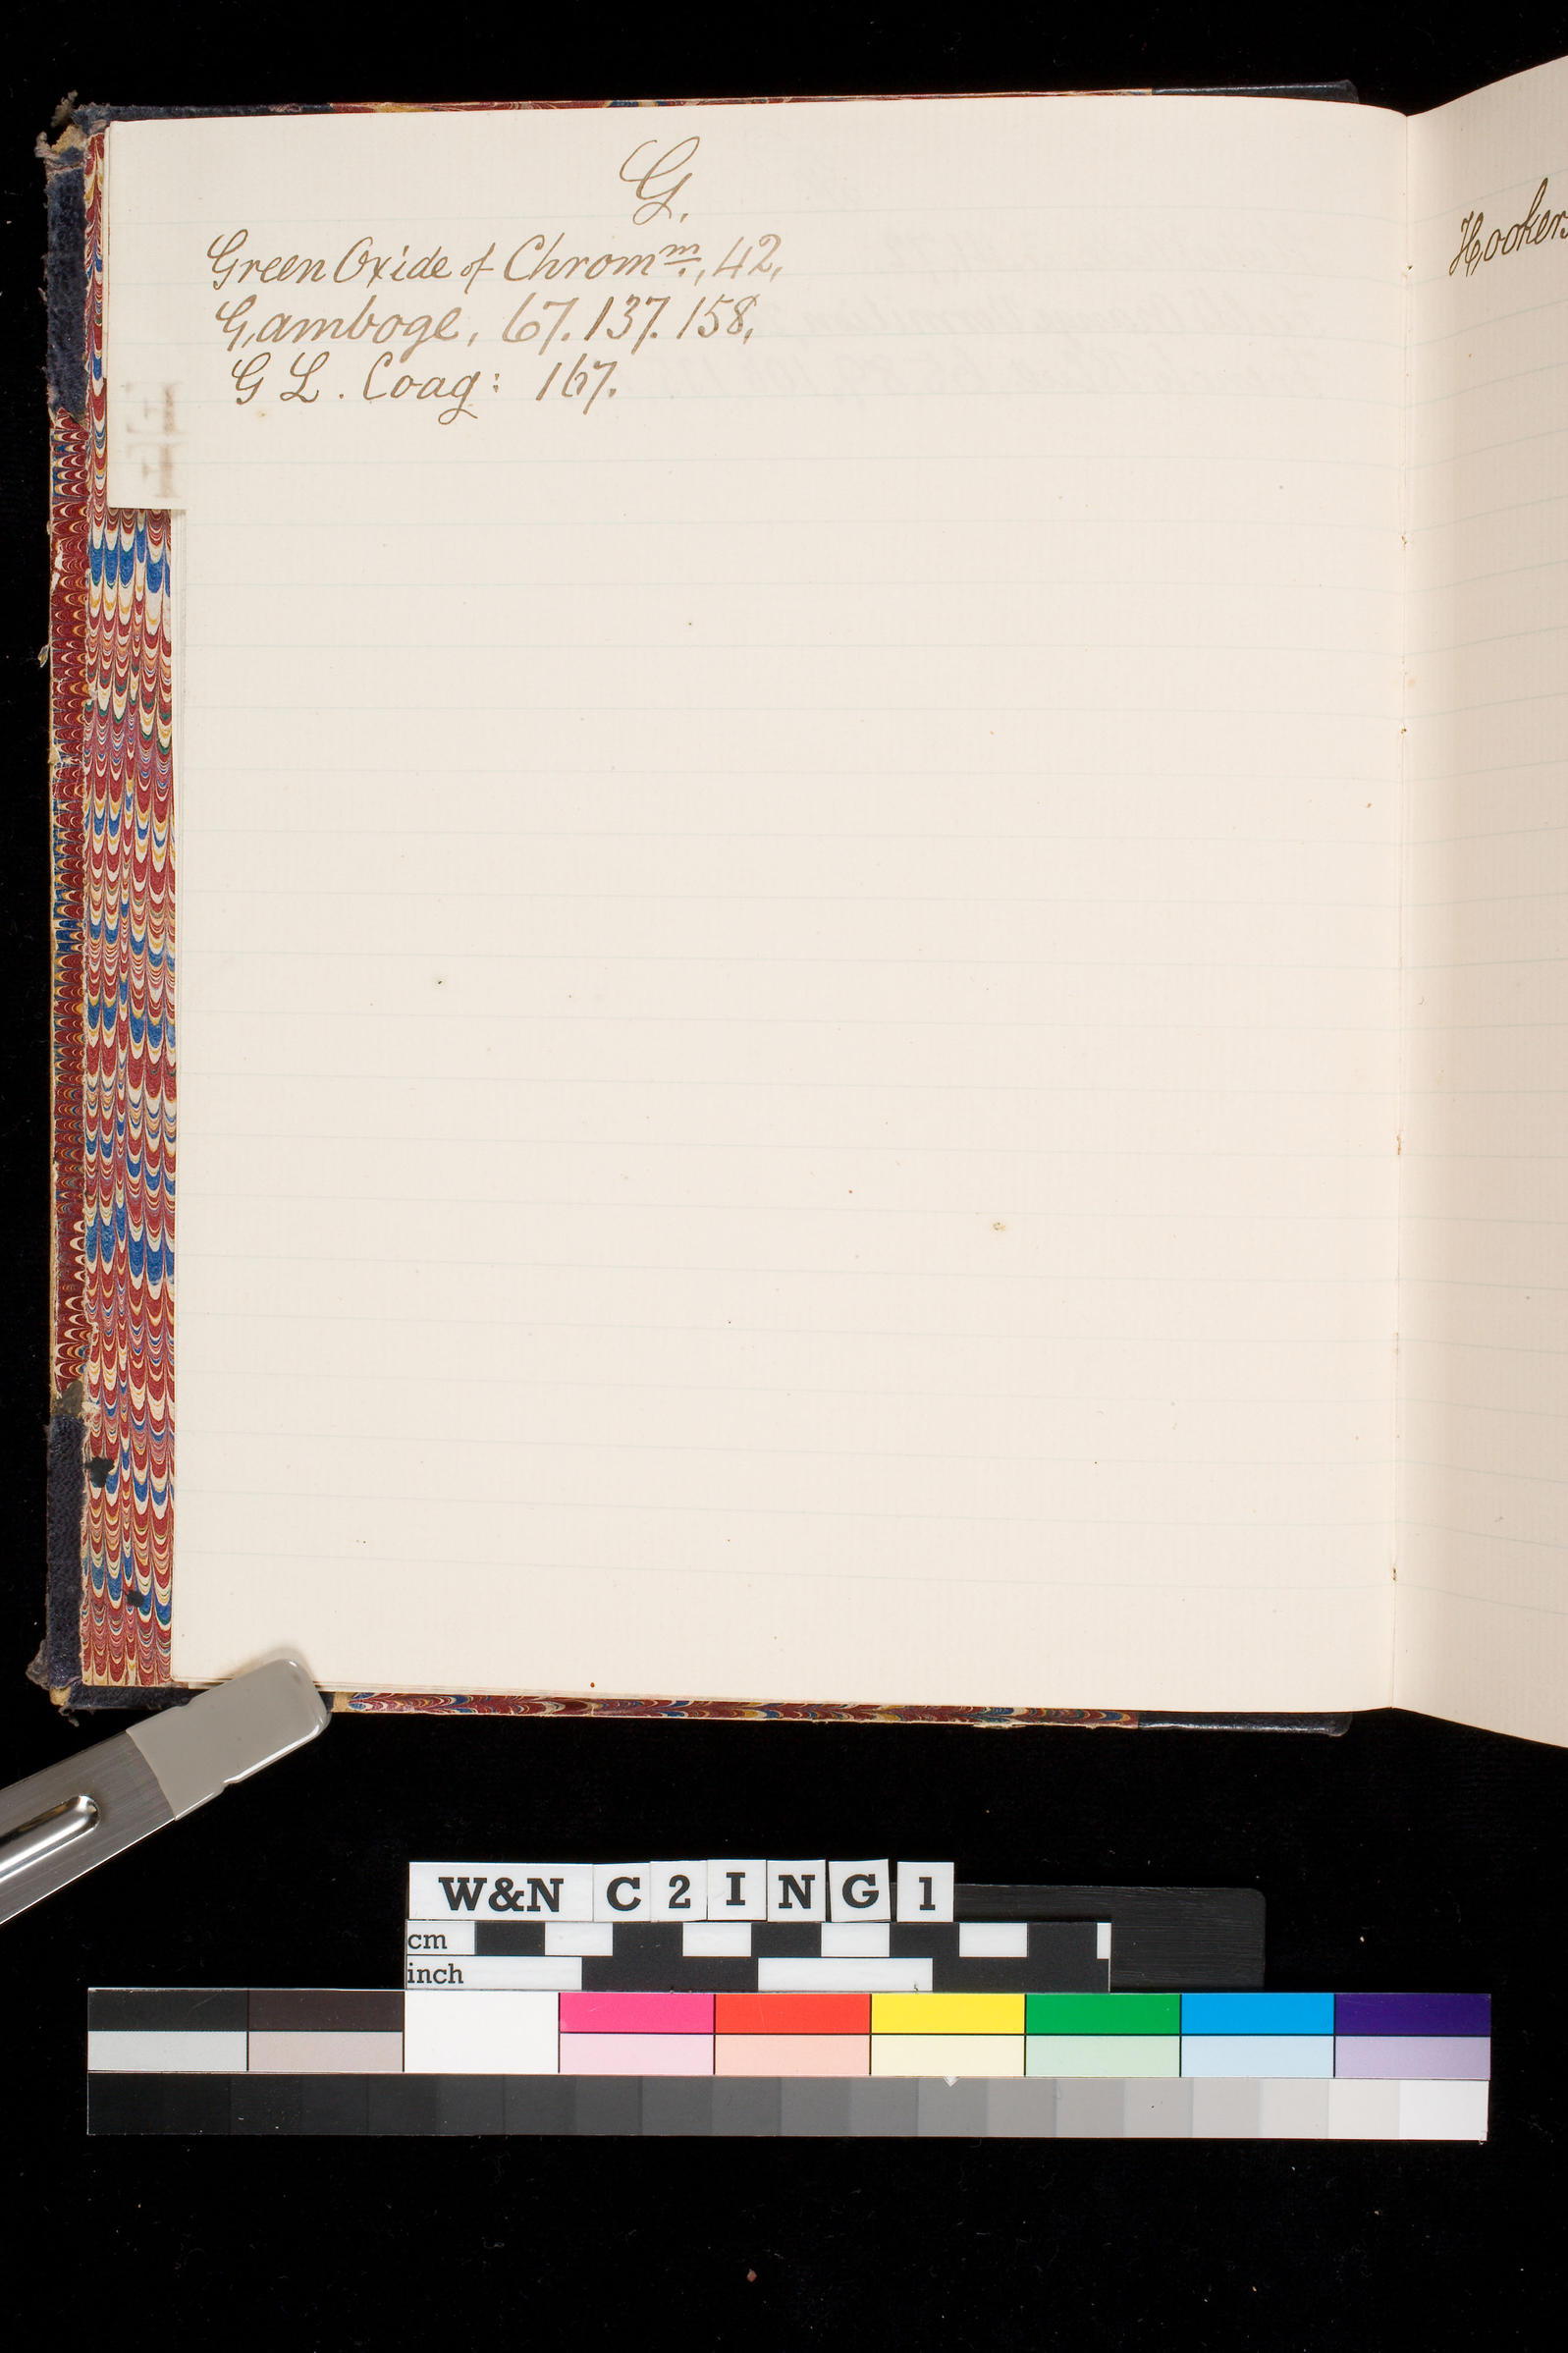 G.
Green Oxide of Chromᵐ., 42,
Gamboge, 67. 137. 158,
G L. Coag: 167.
Hookers
W&N C 2 I N G 1
cm
inch